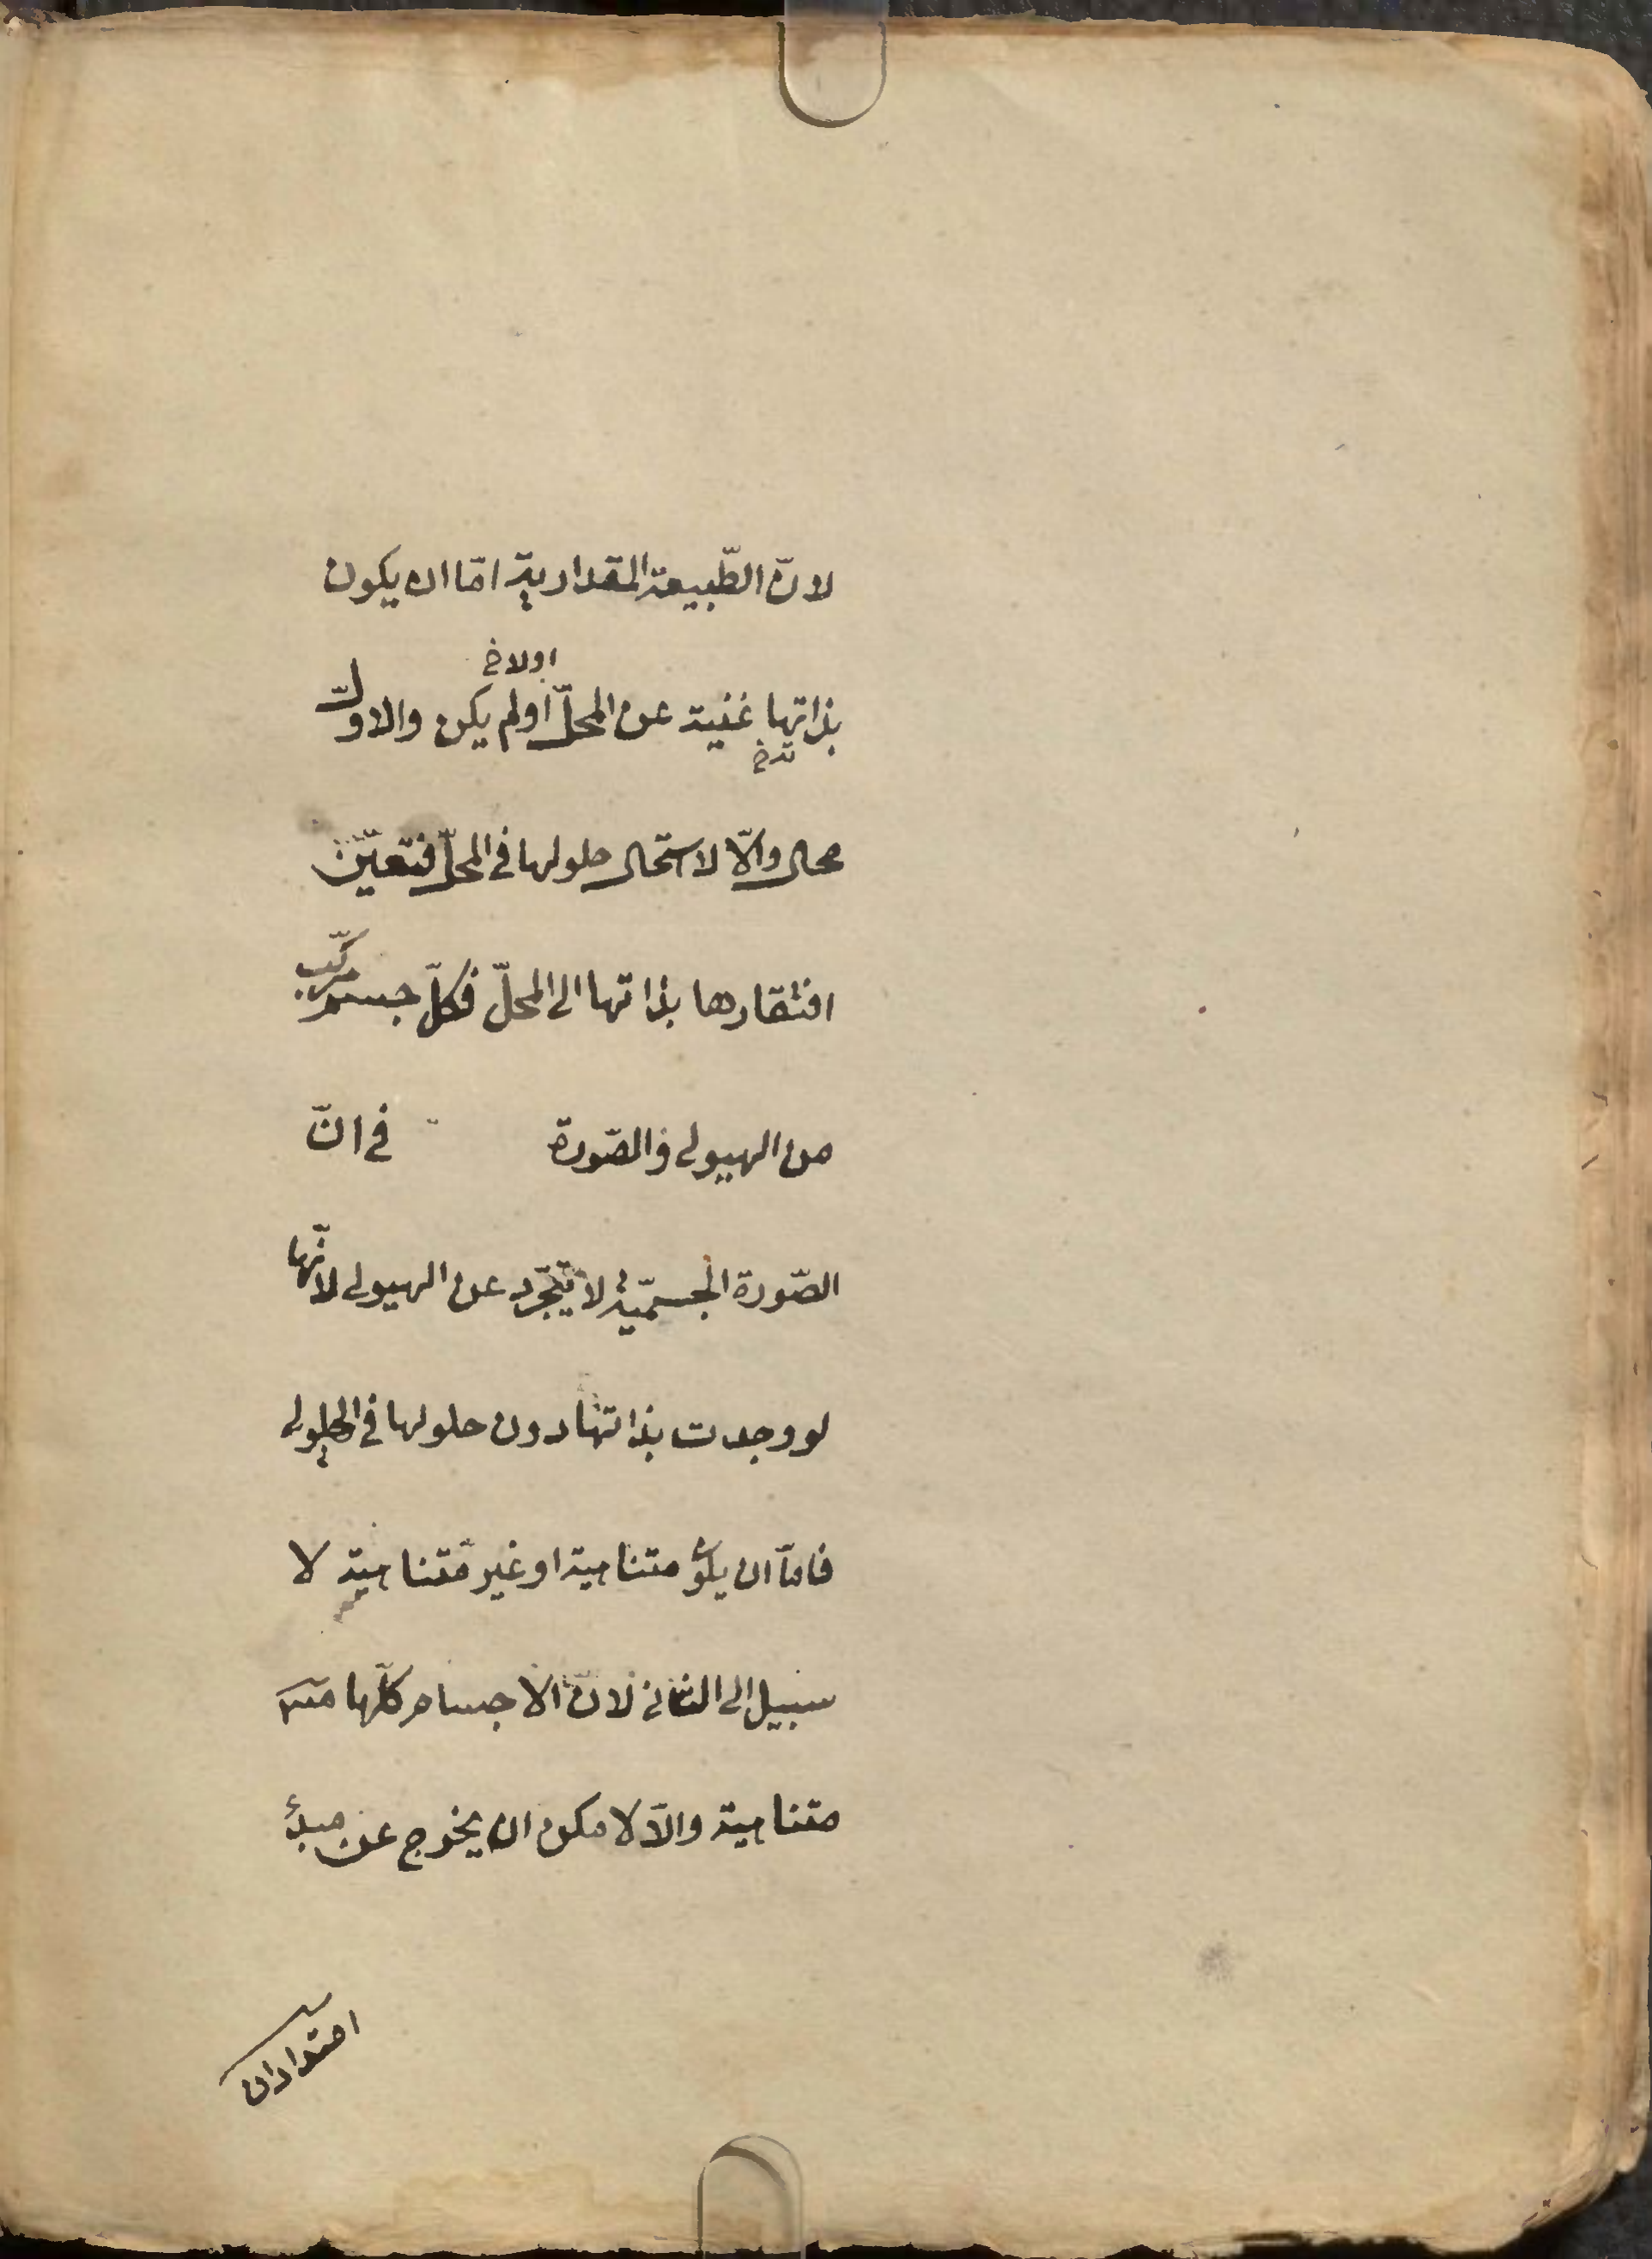 لانّ الطّبيعة المقدارية امّا ان يكون
اولا خ
بذاتها غنية عن المحلّ اولم يكن والاوّل
ته خ
محال والّا لاستحال حلولها فى المحلّ فتعيّن
افتقارها بذاتها الى المحلّ فكلّ جسم مركّب
من الهيولى والصّورة في انّ
الصّورة الجسميّة لا تتجرّد عن الهيولى لانّها
لو وجدت بذاتها دون حلولها فى الهيولى
فامّا ان يكون متناهية او غير متناهية لا
سبيل الى الثانى لانّ الاجسام كلّها
متناهية والّا لامكن ان يخرج عن مبدأ
امتدادان